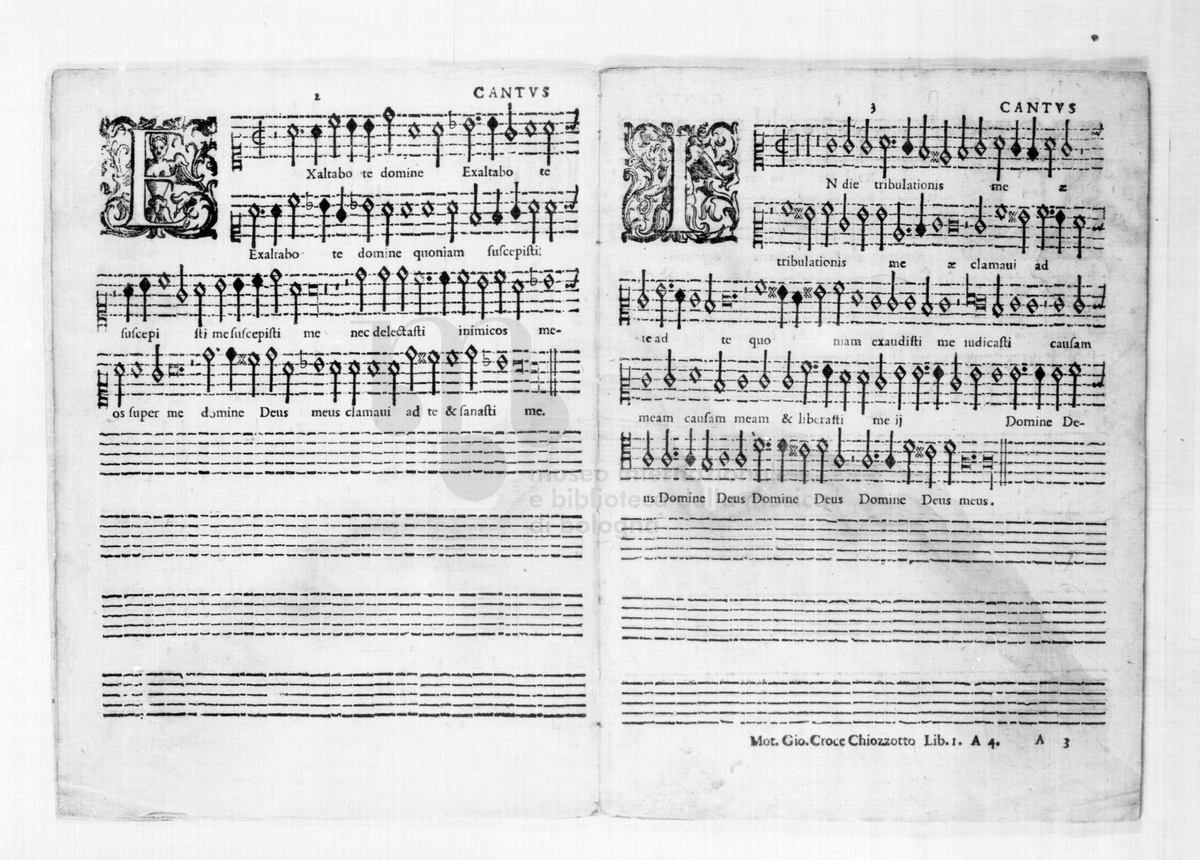 2
CANTVS
EXaltabo te domine Exaltabo te
Exaltabo te domine quoniam suscepisti:
suscepi sti me suscepisti me nec delectasti inimicos me-
os super me domine Deus meus clamaui ad te & sanasti me.
3
CANTVS
IN die tribulationis me æ
tribulationis me æ clamaui ad
te ad te quo niam exaudisti me iudicasti causam
meam causam meam & liberasti me ij Domine De-
us Domine Deus Domine Deus Domine Deus meus.
Mot. Gio. Croce Chiozzotto Lib. 1. A 4. A 3
museo internazionale
e biblioteca della musica
di bologna